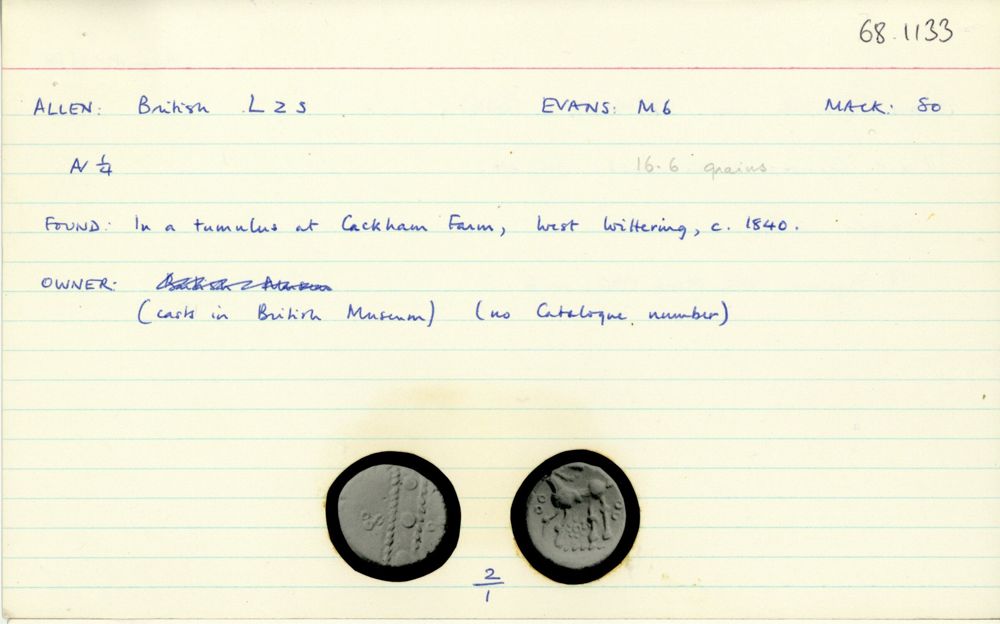 68.1133
ALLEN: British L Z 3 EVANS: M 6 MACK: 80
A/ 1/4 16.6 grains
FOUND: In a tumulus at Cackham Farm, West Wittering, c. 1840.
OWNER:
(casts in British Museum) (no Catalogue number)
2/1